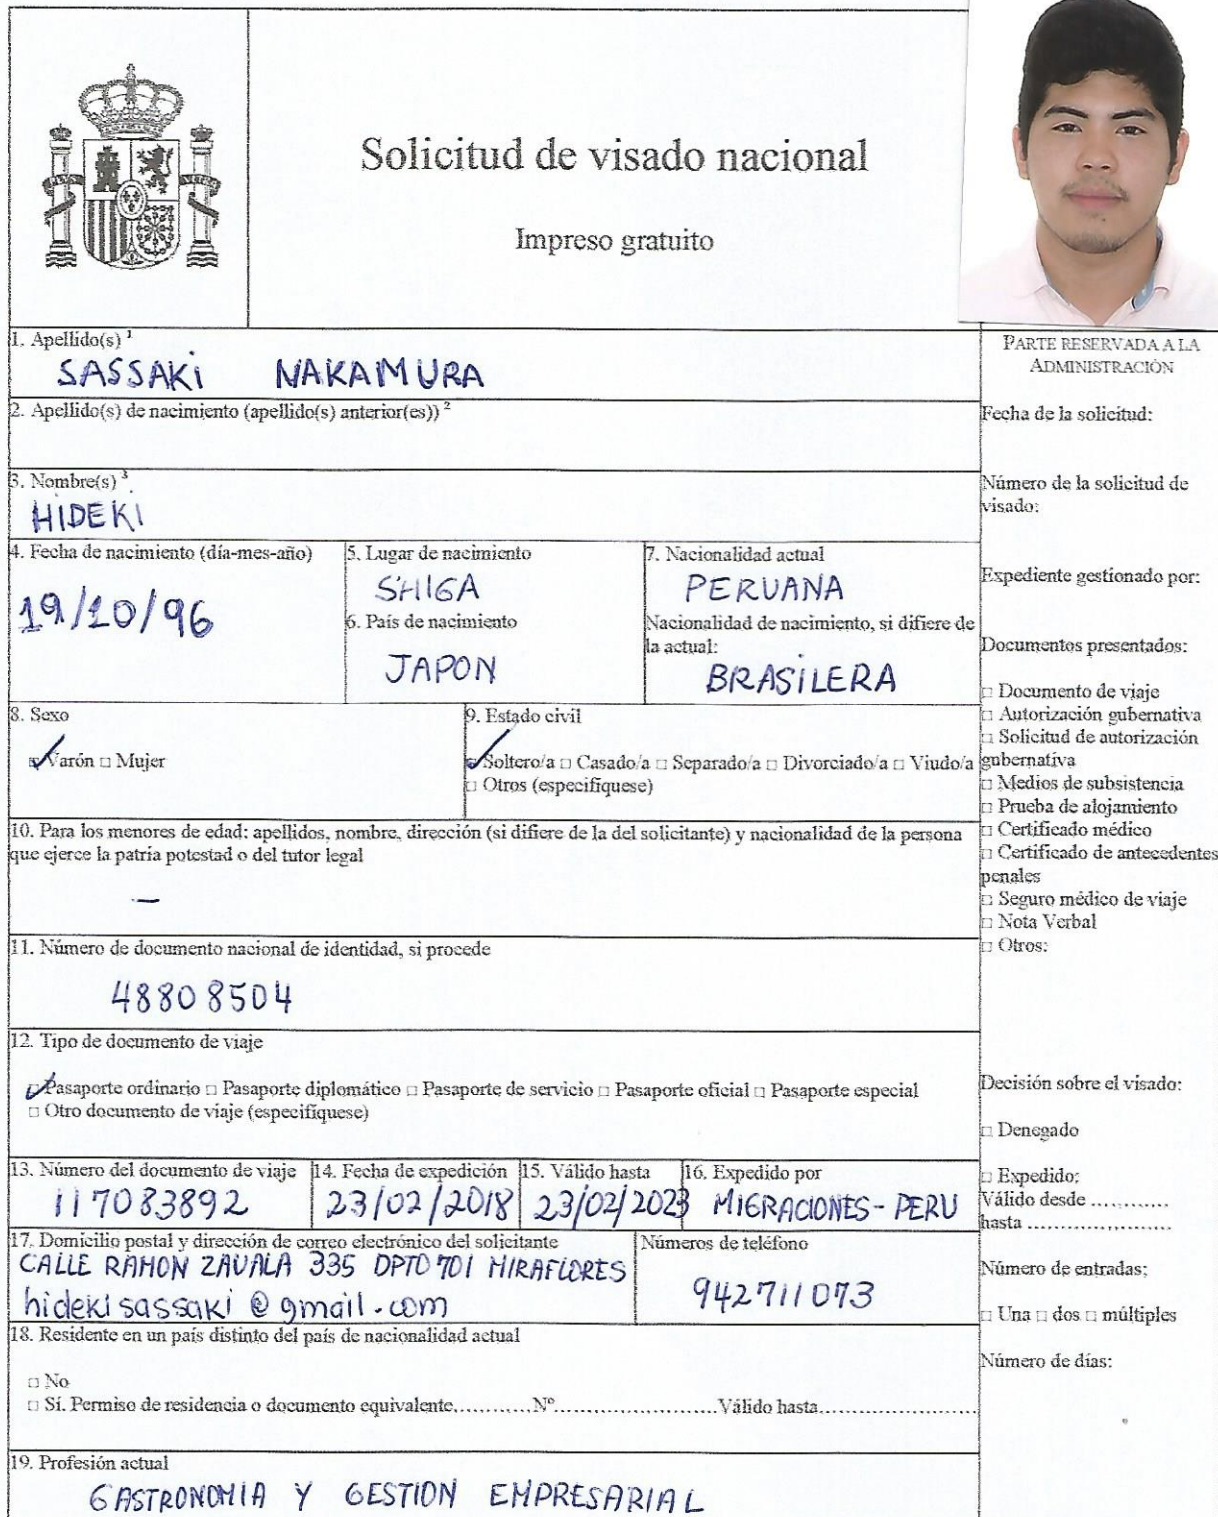 Solicitud de visado nacional
Impreso gratuito
1. Apellido(s) 1
SASSAKI NAKAMURA
2. Apellido(s) de nacimiento (apellido(s) anterior(es)) 2
3. Nombre(s) 3
HIDEKI
4. Fecha de nacimiento (día-mes-año)
19/10/96
5. Lugar de nacimiento
SHIGA
6. País de nacimiento
JAPON
7. Nacionalidad actual
PERUANA
Nacionalidad de nacimiento, si difiere de
la actual:
BRASILERA
8. Sexo
Varón □ Mujer
9. Estado civil
Soltero/a □ Casado/a □ Separado/a □ Divorciado/a □ Viudo/a
□ Otros (especifíquese)
10. Para los menores de edad: apellidos, nombre, dirección (si difiere de la del solicitante) y nacionalidad de la persona
que ejerce la patria potestad o del tutor legal
—
11. Número de documento nacional de identidad, si procede
48808504
12. Tipo de documento de viaje
Pasaporte ordinario □ Pasaporte diplomático □ Pasaporte de servicio □ Pasaporte oficial □ Pasaporte especial
□ Otro documento de viaje (especifíquese)
13. Número del documento de viaje
117083892
14. Fecha de expedición
23/02/2018
15. Válido hasta
23/02/2023
16. Expedido por
MIGRACIONES - PERU
17. Domicilio postal y dirección de correo electrónico del solicitante
CALLE RAMON ZAVALA 335 DPTO 701 MIRAFLORES
hidekisassaki@gmail.com
Números de teléfono
942711073
18. Residente en un país distinto del país de nacionalidad actual
□ No
□ Sí. Permiso de residencia o documento equivalente...........Nº.......................Válido hasta......................
19. Profesión actual
GASTRONOMIA Y GESTION EMPRESARIAL
PARTE RESERVADA A LA
ADMINISTRACIÓN
Fecha de la solicitud:
Número de la solicitud de
visado:
Expediente gestionado por:
Documentos presentados:
□ Documento de viaje
□ Autorización gubernativa
□ Solicitud de autorización
gubernativa
□ Medios de subsistencia
□ Prueba de alojamiento
□ Certificado médico
□ Certificado de antecedentes
penales
□ Seguro médico de viaje
□ Nota Verbal
□ Otros:
Decisión sobre el visado:
□ Denegado
□ Expedido:
Válido desde ...........
hasta ....................
Número de entradas:
□ Una □ dos □ múltiples
Número de días: